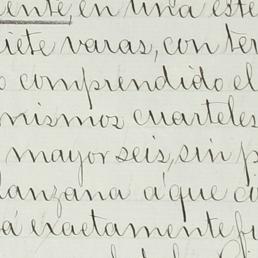 ente en una este
iete varas, con ter
o comprendido el
mismos cuarteles
mayor seis, sin p
anzana á que ci
á exactamente fi